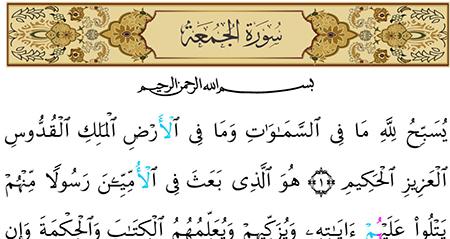 سُورَةُ الجُمُعَةِ
بِسْمِ اللهِ الرَّحْمٰنِ الرَّحِيمِ
يُسَبِّحُ لِلَّهِ مَا فِى السَّمَـٰوَٰتِ وَمَا فِى الْأَرْضِ الْمَلِكِ الْقُدُّوسِ
الْعَزِيزِ الْحَكِيمِ ﴿١﴾ هُوَ الَّذِى بَعَثَ فِى الْأُمِّيِّـۧنَ رَسُولًا مِّنْهُمْ
يَتْلُوا۟ عَلَيْهِمْ ءَايَـٰتِهِۦ وَيُزَكِّيهِمْ وَيُعَلِّمُهُمُ الْكِتَـٰبَ وَالْحِكْمَةَ وَإِن